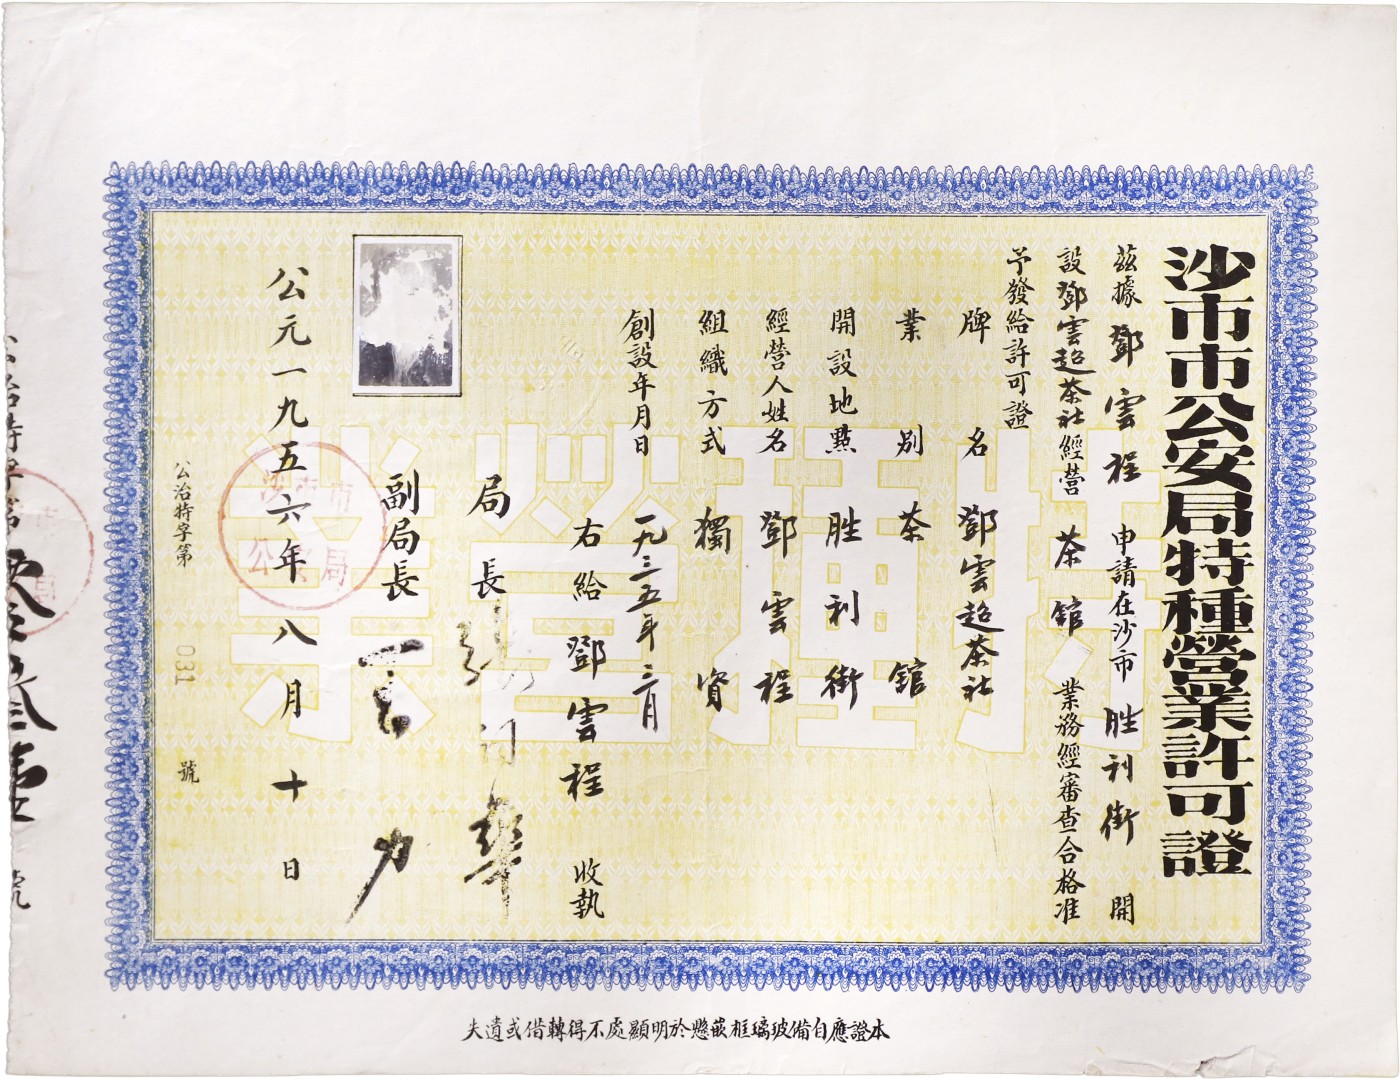 沙市市公安局特種營業許可證
茲據鄧雲程申請在沙市胜利街開
設鄧雲超茶社經營茶館業務經審查合格准
予發給許可證
牌名鄧雲超茶社
業別茶館
開設地點胜利街
經營人姓名鄧雲程
組織方式獨資
創設年月日一九三五年三月
右給鄧雲程收執
局長
副局長
公元一九五六年八月十日
公治特字第031號
沙市市
公安局
特種營業
公治特字第
號
本證應自備玻璃框嵌懸於明顯處不得轉借或遺失